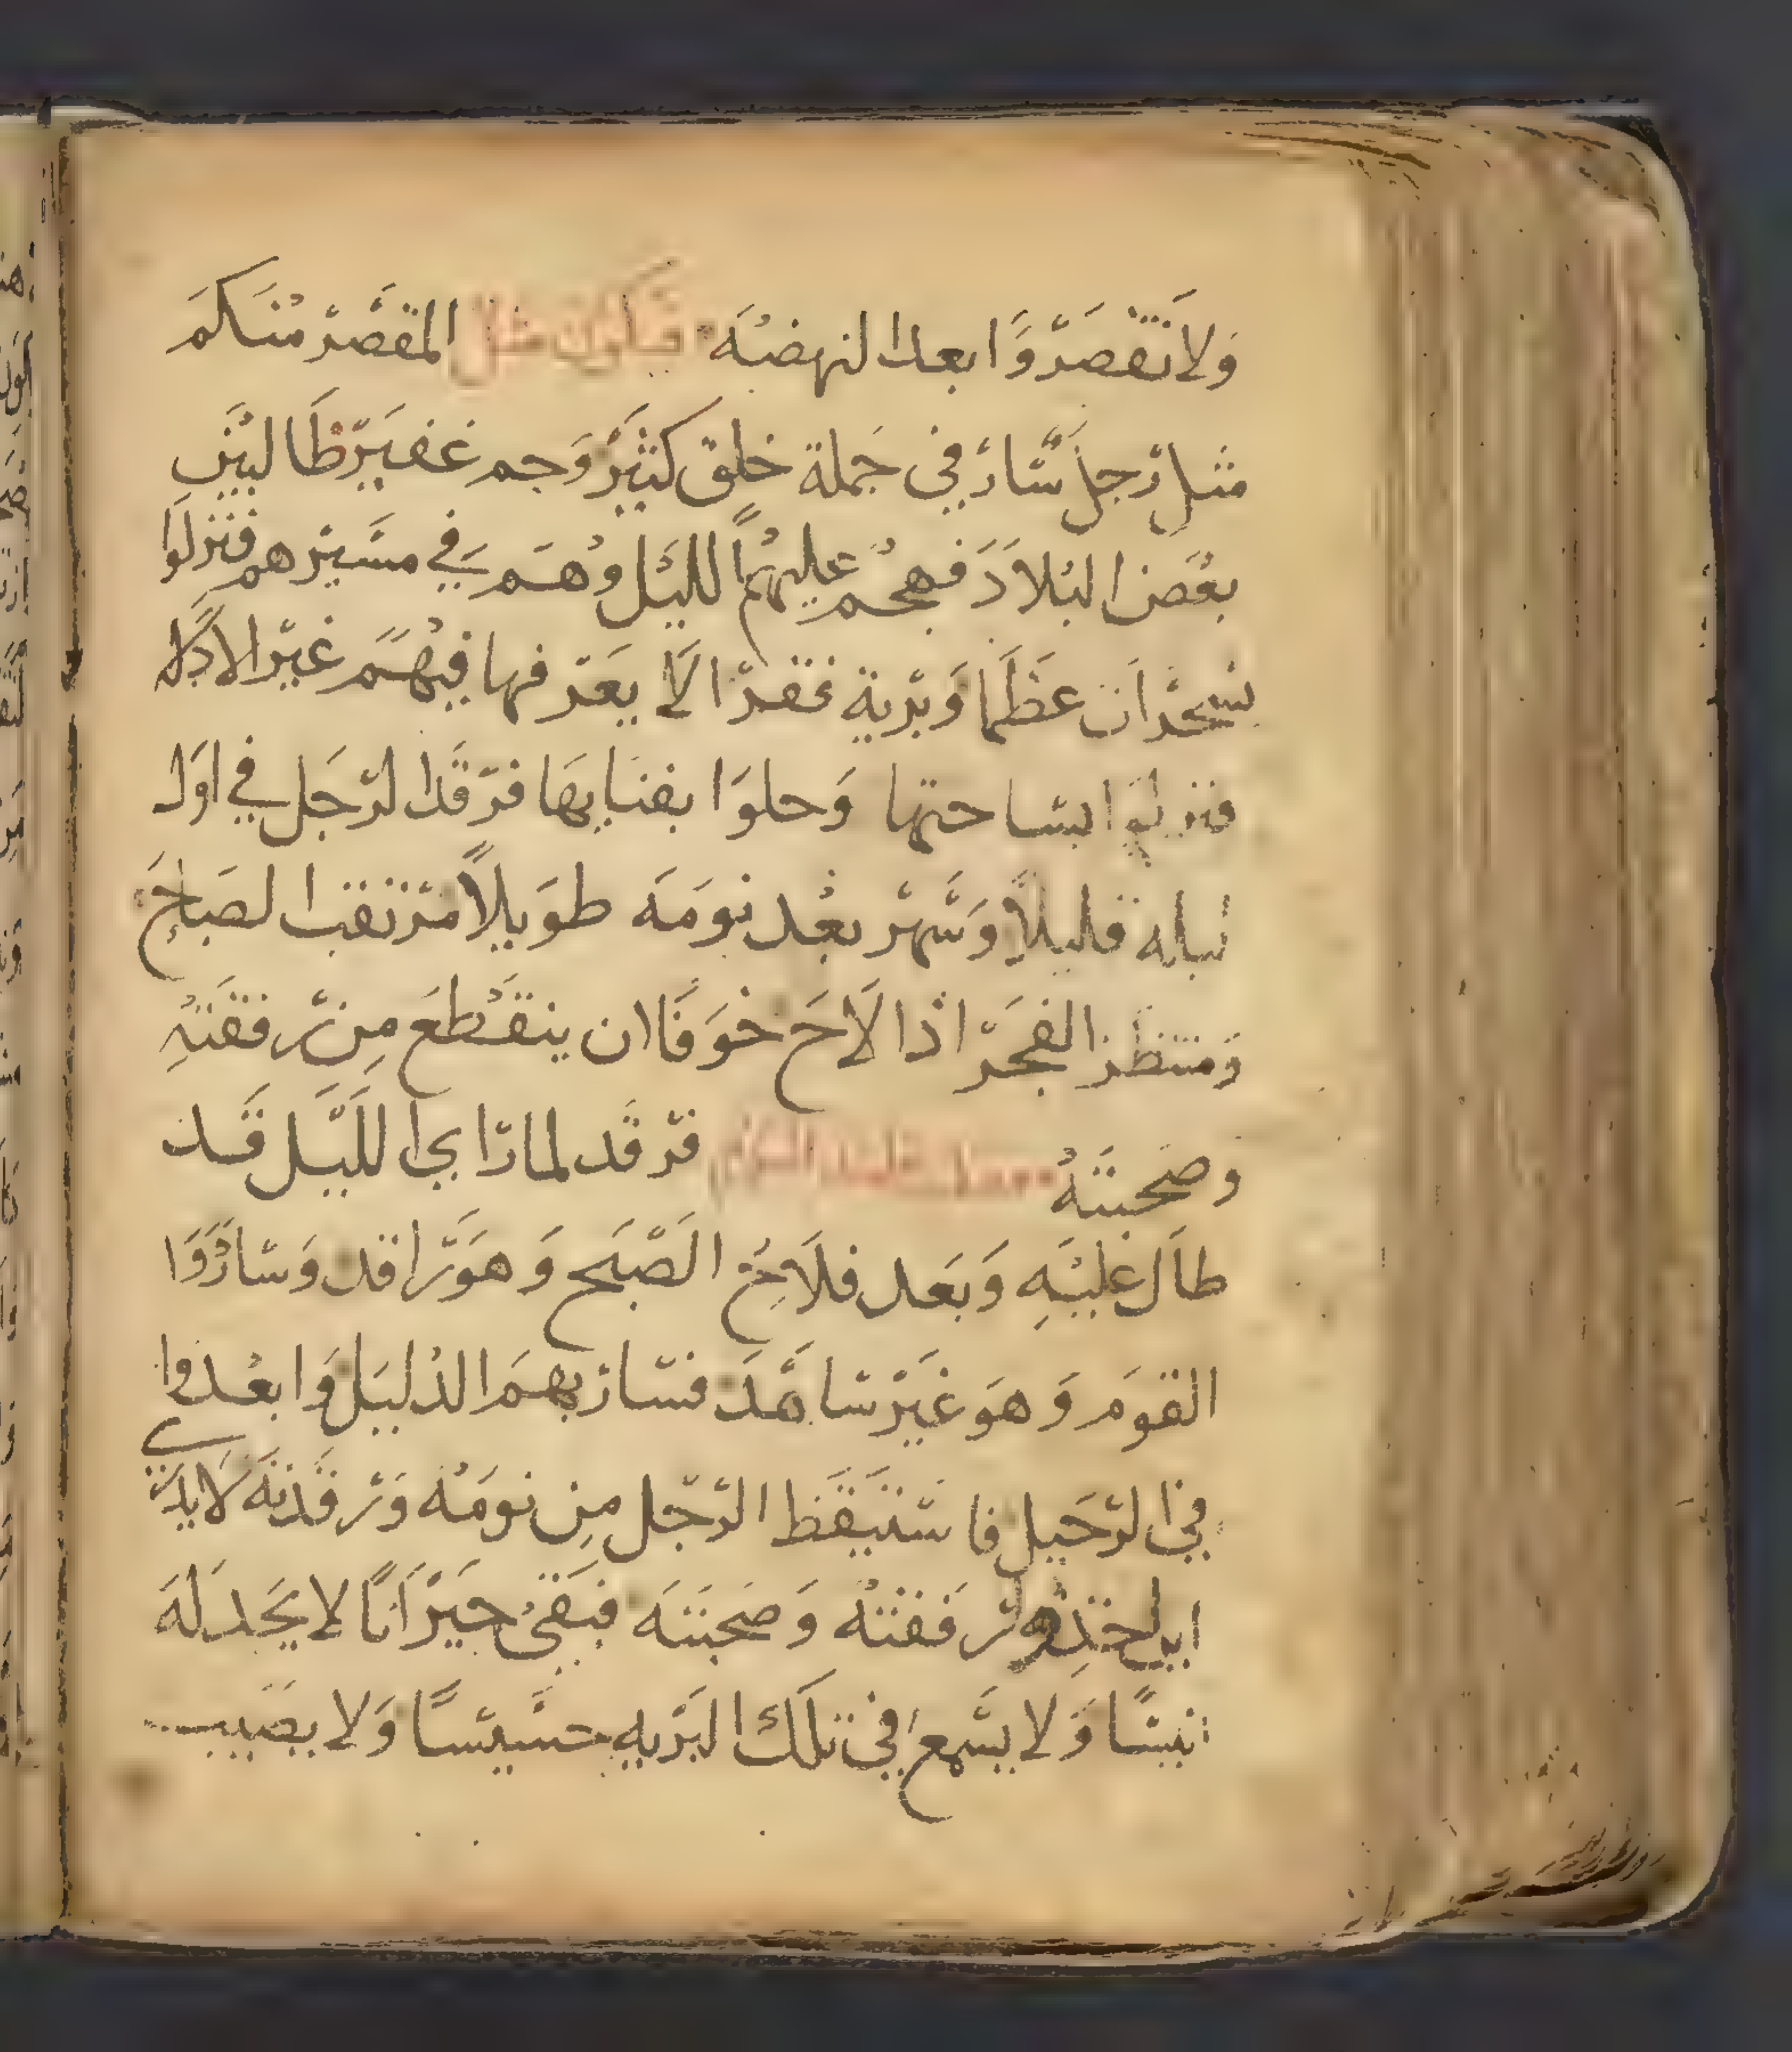 ولا تقصروا بعد النهضه فيكون مثل المقصر منكم
مثل رجل سار في جملة خلق كثير وجم غفير طالبين
بعض البلاد فهجم عليهم الليل وهم في مسيرهم فنزلوا
عظما وبرية قفرا لا يعرفها فيهم غير الادله
فنزلوا بساحتها وحلوا بفنايها فرقد الرجل في اول
ليله قليلا وسهر بعد نومه طويلا مرتقب الصباح
ومنتظر الفجر اذا لاح خوفا ان ينقطع من رفقته
وصحبته فرقد لما راي الليل قد
طال عليه وبعد فلاح الصبح وهو راقد وساروا
القوم وهو غير ساهد فسار بهم الدليل وابعدوا
في الرحيل فاستيقظ الرجل من نومه ورقدته لا يدري
اين رفقته وصحبته فبقى حيرانا لا يجد له
انيسا ولا يسمع في تلك البريه حسيسا ولا يصيب